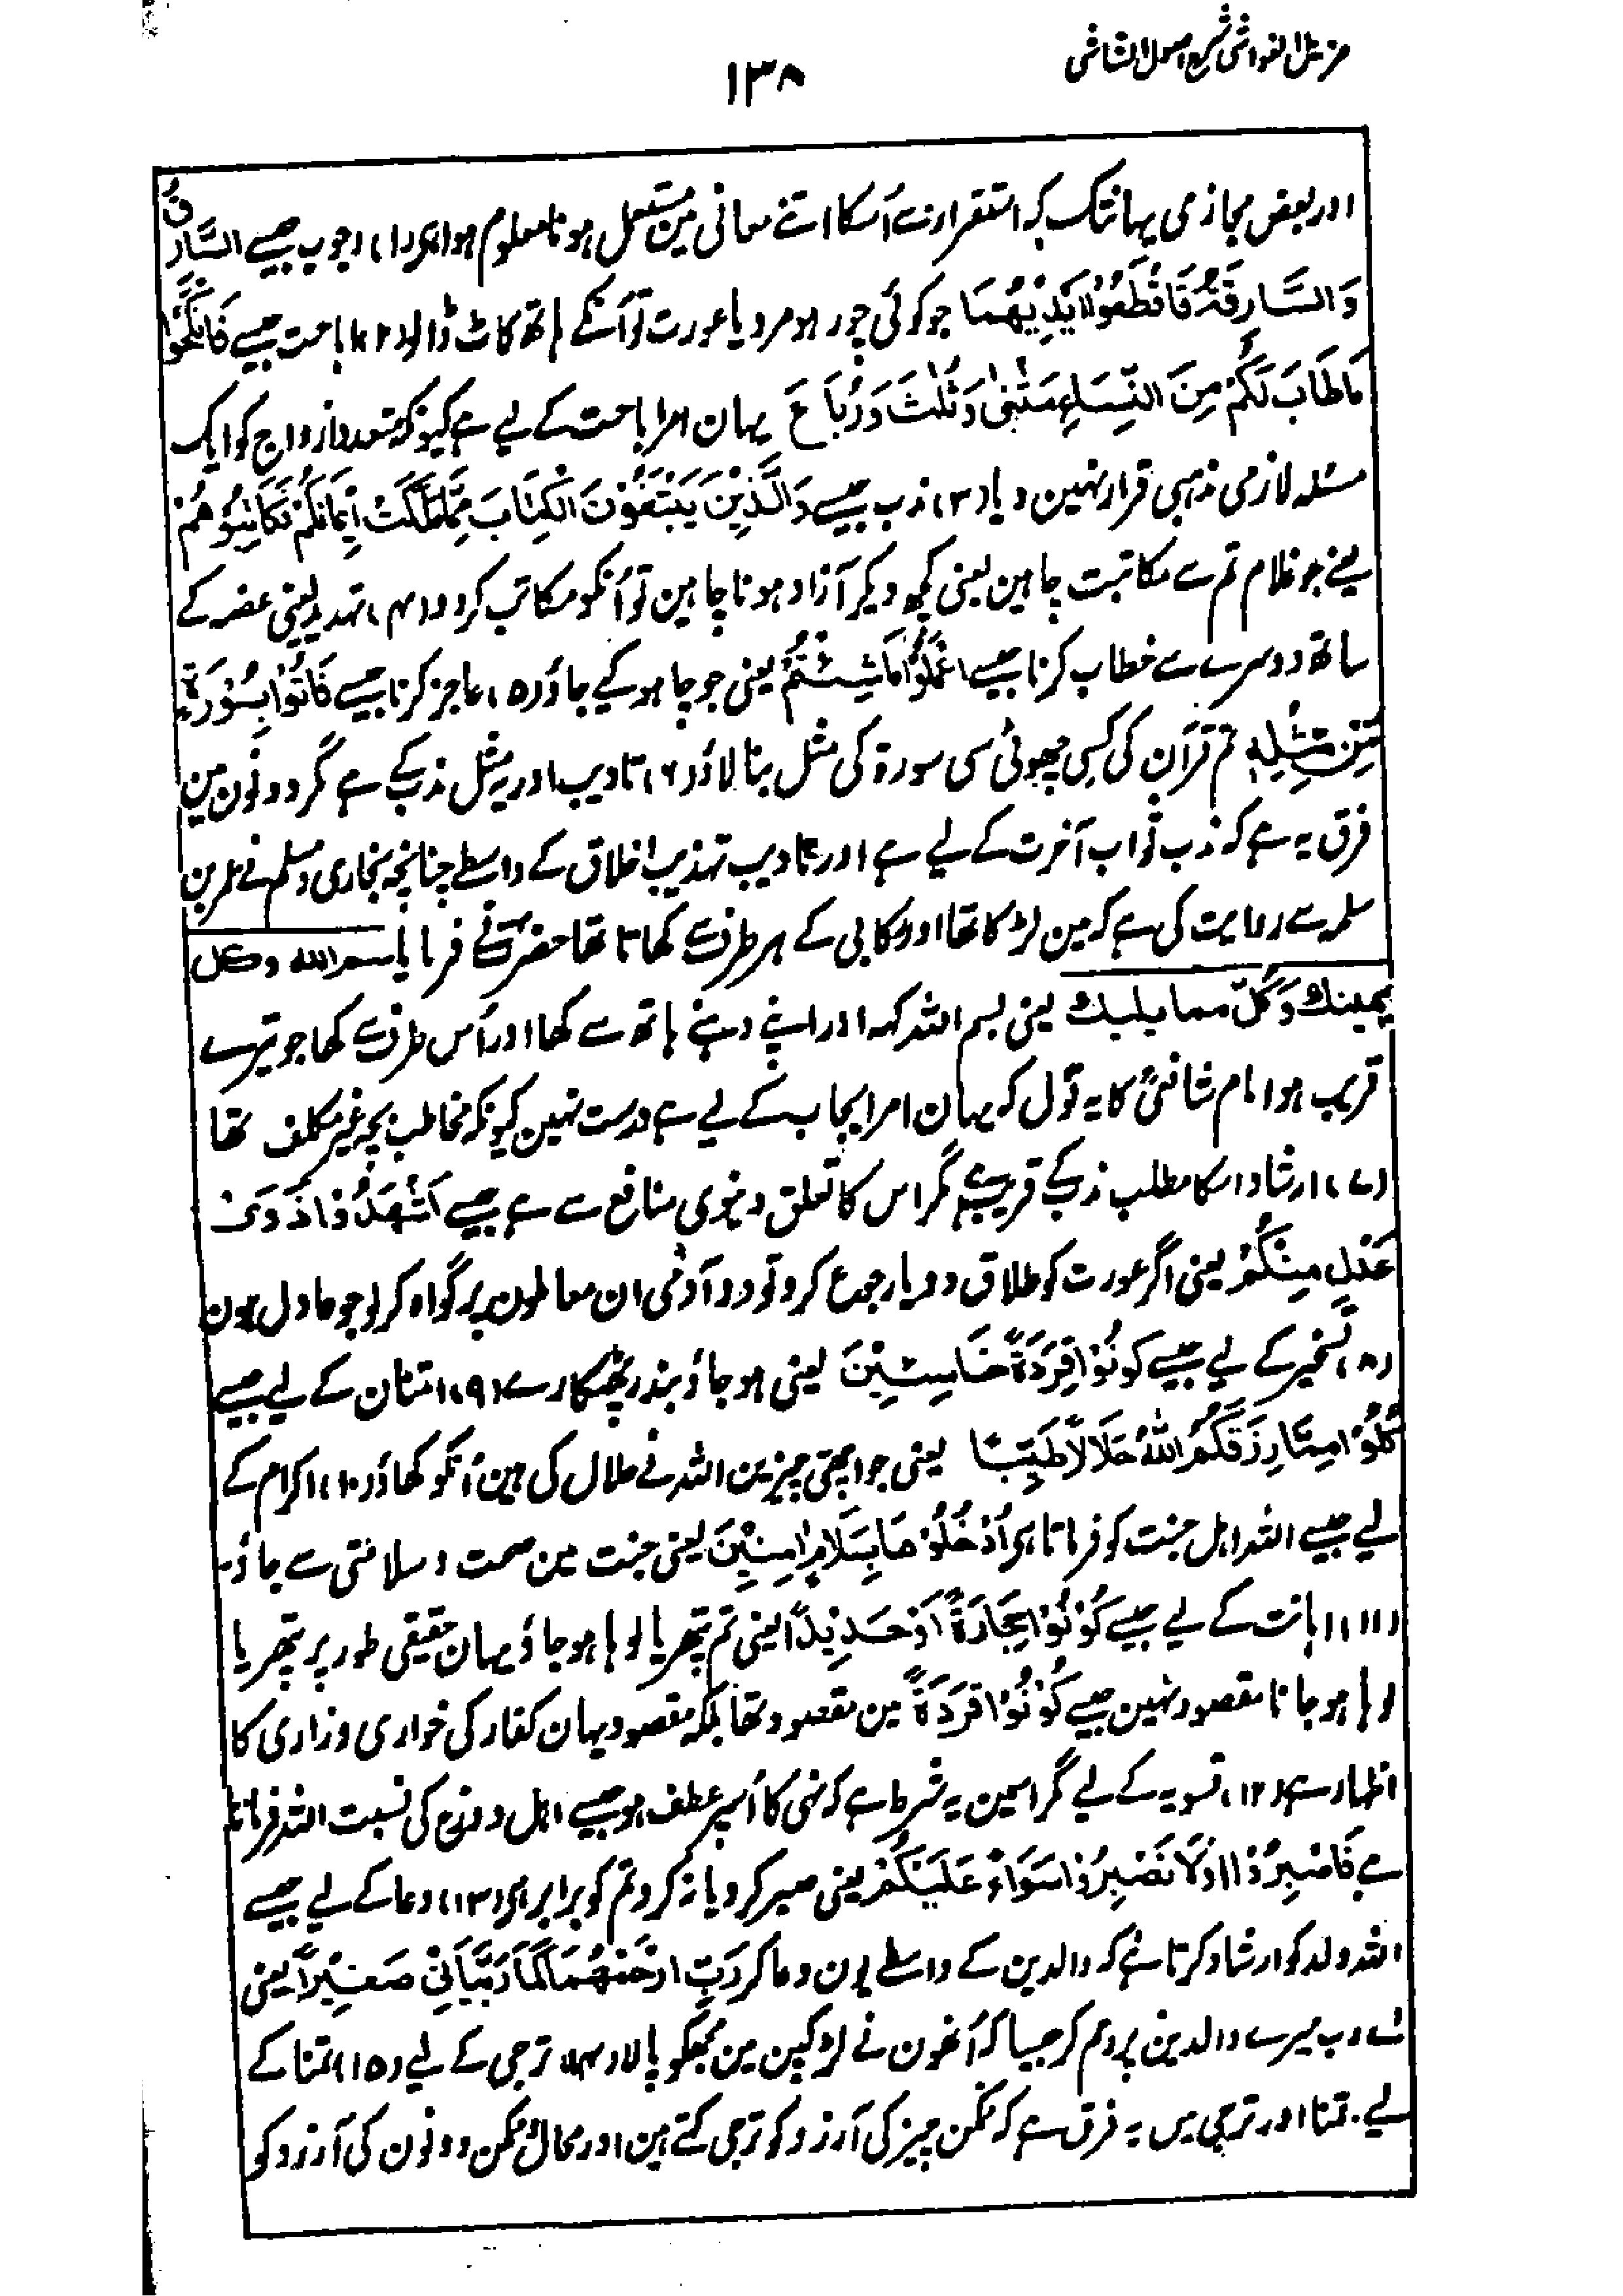 مزیل الغواشی شرح اصول الشاشی
۱۳۸
اور بعض مجازی یہانتک کہ استقرار سے اُسکا اتنے معانی مین مستعمل ہونا معلوم ہوا ہی (۱) وجوب جیسے السَّارِقُ
وَالسَّارِقَةُ فَاقْطَعُوْا اَیْدِیَهُمَا جو کوئی چور ہو مرد یا عورت تو اُنکے ہاتھ کاٹ ڈالو (۲) اباحت جیسے فَانْكِحُوْا
مَا طَابَ لَكُمْ مِنَ النِّسَاءِ مَثْنٰی وَثُلٰثَ وَرُبَاعَ یہان امر اباحت کے لیے ہے کیونکہ تعدد ازدواج کو ایک
مسئلہ لازمی مذہبی قرار نہین دیا (۳) ندب جیسے وَالَّذِیْنَ یَبْتَغُوْنَ الْكِتَابَ مِمَّا مَلَكَتْ اَیْمَانُكُمْ فَكَاتِبُوْهُمْ
یعنے جو غلام تم سے مکاتبت چاہین یعنی کچھ دیکر آزاد ہونا چاہین تو اُنکو مکاتب کردو (۴) تہدید یعنی غصہ کے
ساتھ دوسرے سے خطاب کرنا جیسے اعْمَلُوْا مَا شِئْتُمْ یعنی جو چاہو کیے جاؤ (۵) عاجز کرنا جیسے فَأْتُوْا بِسُوْرَةٍ
مِّنْ مِّثْلِهٖ تم قرآن کی کسی چھوٹی سی سورۃ کی مثل بنا لاؤ (۶) تادیب اور یہ مثل ندب کے ہے مگر دونون مین
فرق یہ ہے کہ ندب ثواب آخرت کے لیے ہے اور تادیب تہذیب اخلاق کے واسطے چنانچہ بخاری و مسلم نے عمر بن
سلمہ سے روایت کی ہے کہ مین لڑکا تھا اور رکابی کے ہر طرف سے کھاتا تھا حضرت نے فرمایا سم اللہ وکل
بیمینك وَکُلْ مما یلیك یعنی بسم اللہ کہہ اور اپنے دہنے ہاتھ سے کھا اور اُس طرف سے کھا جو تیرے
قریب ہو امام شافعیؒ کا یہ قول کہ یہان امر ایجاب کے لیے ہے درست نہین کیونکہ مخاطب بچہ غیر مکلف تھا
(۷) ارشاد اسکا مطلب ندب کے قریب ہے مگر اس کا تعلق دنیوی منافع سے ہے جیسے اَشْهِدُوْا ذَوَیْ
عَدْلٍ مِنْكُمْ یعنی اگر عورت کو طلاق دو یا رجوع کرو تو دو آدمی ان معاملون پر گواہ کرلو جو عادل ہون
(۸) تسخیر کے لیے جیسے كُوْنُوْا قِرَدَةً خَاسِئِیْنَ یعنی ہو جاؤ بندر پھٹکارے (۹) امتنان کے لیے جیسے
كُلُوْا مِمَّا رَزَقَكُمُ اللّٰهُ حَلَالًا طَیِّبًا یعنی جو اچھی چیزین اللہ نے حلال کی ہین اُنکو کھاؤ (۱۰) اکرام کے
لیے جیسے اللہ اہل جنت کو فرماتا ہی اُدْخُلُوْهَا بِسَلَامٍ اٰمِنِیْنَ یعنی جنت مین صحت و سلامتی سے جاؤ۔
(۱۱) اہانت کے لیے جیسے كُوْنُوْا حِجَارَةً اَوْ حَدِیْدًا یعنی تم پتھر یا لوہا ہو جاؤ یہان حقیقی طور پر پتھر یا
لوہا ہو جانا مقصود نہین جیسے كُوْنُوْا قِرَدَةً مین مقصود تھا بلکہ مقصود یہان کفار کی خواری و زاری کا
اظہار ہے (۱۲) تسویہ کے لیے مگر اسمین یہ شرط ہے کہ نہی کا اُسپر عطف ہو جیسے اہل دوزخ کی نسبت اللہ فرماتا
ہے فَاصْبِرُوْا اَوْ لَا تَصْبِرُوْا سَوَاءٌ عَلَیْكُمْ یعنی صبر کرو یا نہ کرو تم کو برابر ہی (۱۳) دعا کے لیے جیسے
اللہ ولد کو ارشاد کرتا ہے کہ والدین کے واسطے یون دعا کر رَبِّ ارْحَمْهُمَا كَمَا رَبَّیَانِیْ صَغِیْرًا یعنی
اے رب میرے والدین پر رحم کر جیسا کہ اُنھون نے لڑکپن مین مجھکو پالا (۱۴) ترجی کے لیے (۱۵) تمنا کے
لیے۔ تمنا اور ترجی یں یہ فرق ہے کہ ممکن چیز کی آرزو کو ترجی کہتے ہین اور محال و ممکن دونون کی آرزو کو